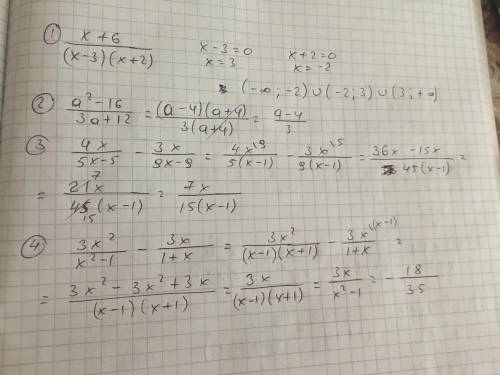 ① x+6 / (x-3)(x+2) x-3=0 x+2=0
x=3 x=-2
(-∞; -2) ∪ (-2; 3) ∪ (3; +∞)
② a²-16 / 3a+12 = (a-4)(a+4) / 3(a+4) = a-4 / 3
③ 4x / 5x-5 - 3x / 9x-9 = 4x\9 / 5(x-1) - 3x\5 / 9(x-1) = 36x-15x / 45(x-1) =
= 21x 7 / 45 15 (x-1) = 7x / 15(x-1)
④ 3x² / x²-1 - 3x / 1+x = 3x² / (x-1)(x+1) - 3x\(x-1) / 1+x =
= 3x²-3x²+3x / (x-1)(x+1) = 3x / (x-1)(x+1) = 3x / x²-1 = - 18 / 35